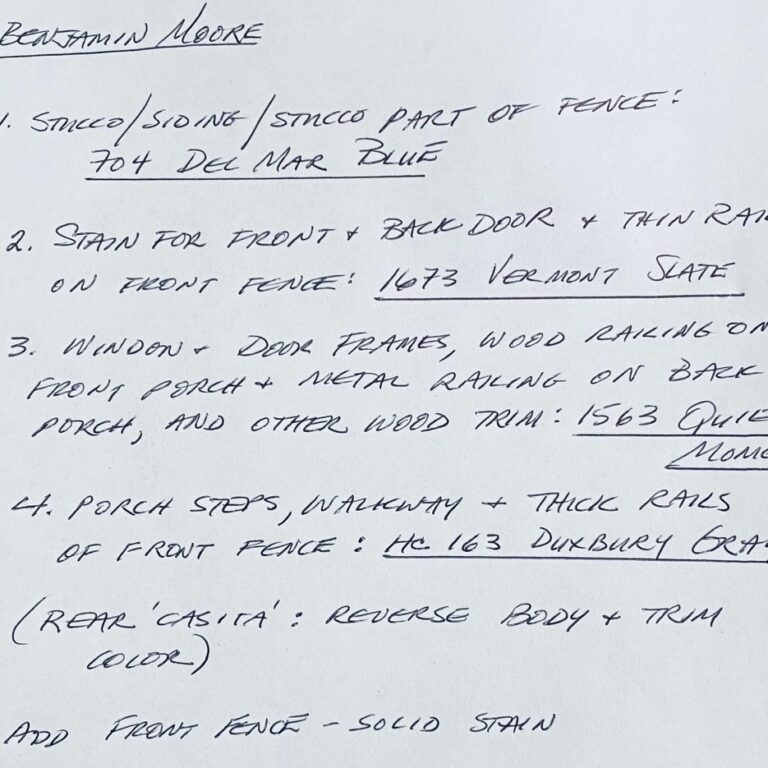 BENJAMIN MOORE
1. STUCCO/SIDING/STUCCO PART OF FENCE:
704 DEL MAR BLUE
2. STAIN FOR FRONT + BACK DOOR + THIN RAI
ON FRONT FENCE: 1673 VERMONT SLATE
3. WINDOW + DOOR FRAMES, WOOD RAILING ON
FRONT PORCH + METAL RAILING ON BACK
PORCH, AND OTHER WOOD TRIM: 1563 QUIE
MOME
4. PORCH STEPS, WALKWAY + THICK RAILS
OF FRONT FENCE: HC 163 DUXBURY GRA
(REAR 'CASITA': REVERSE BODY + TRIM
COLOR)
ADD FRONT FENCE - SOLID STAIN